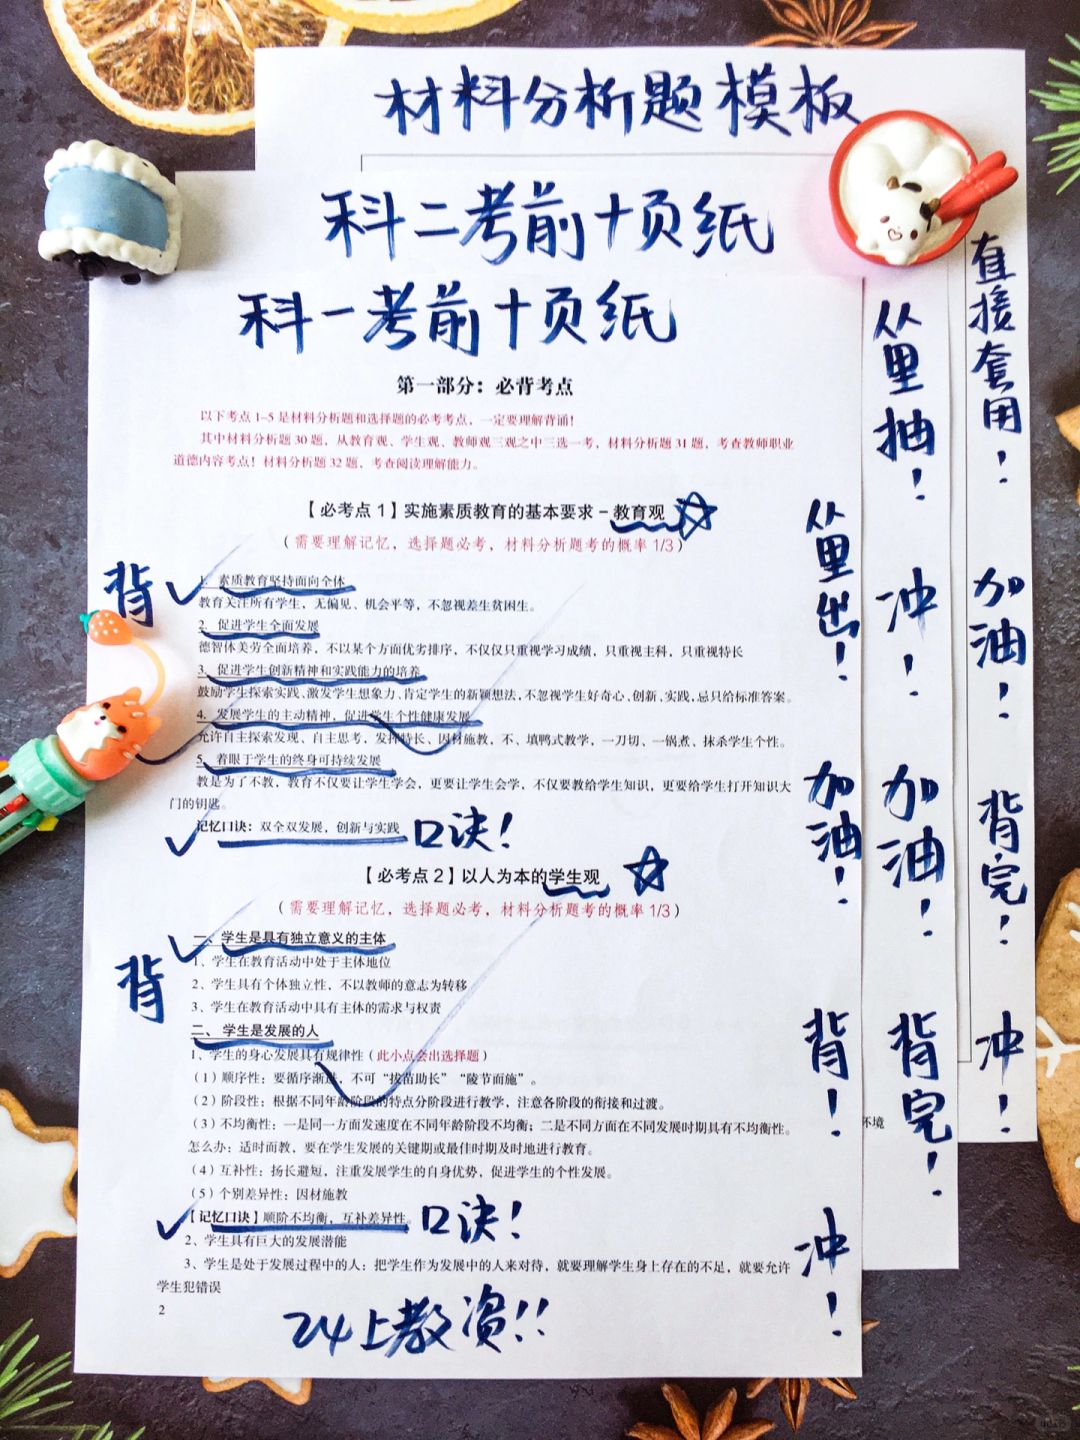 材料分析题模板
科二考前十页纸
科一考前十页纸
第一部分：必背考点
以下考点 1-5 是材料分析题和选择题的必考考点，一定要理解背诵！
其中材料分析题 30 题，从教育观、学生观、教师观三观之中三选一考，材料分析题 31 题，考查教师职业
道德内容考点！材料分析题 32 题，考查阅读理解能力。
【必考点 1】实施素质教育的基本要求－教育观
（需要理解记忆，选择题必考，材料分析题考的概率 1/3）
背
1. 素质教育坚持面向全体
教育关注所有学生，无偏见、机会平等，不忽视差生贫困生。
2. 促进学生全面发展
德智体美劳全面培养，不以某个方面优劣排序，不仅仅只重视学习成绩，只重视主科，只重视特长
3. 促进学生创新精神和实践能力的培养
鼓励学生探索实践、激发学生想象力、肯定学生的新颖想法，不忽视学生好奇心、创新、实践，忌只给标准答案。
4. 发展学生的主动精神，促进学生个性健康发展
允许自主探索发现、自主思考，发挥特长、因材施教，不、填鸭式教学，一刀切、一锅煮、抹杀学生个性。
5. 着眼于学生的终身可持续发展
教是为了不教，教育不仅要让学生学会，更要让学生会学，不仅要教给学生知识，更要给学生打开知识大
门的钥匙。
记忆口诀：双全双发展，创新与实践 口诀！
【必考点 2】以人为本的学生观
（需要理解记忆，选择题必考，材料分析题考的概率 1/3）
背
一、学生是具有独立意义的主体
1、学生在教育活动中处于主体地位
2、学生具有个体独立性，不以教师的意志为转移
3、学生在教育活动中具有主体的需求与权责
二、 学生是发展的人
1、学生的身心发展具有规律性（此小点会出选择题）
（1）顺序性：要循序渐进，不可“拔苗助长”“陵节而施”。
（2）阶段性：根据不同年龄阶段的特点分阶段进行教学，注意各阶段的衔接和过渡。
（3）不均衡性：一是同一方面发速度在不同年龄阶段不均衡；二是不同方面在不同发展时期具有不均衡性。
怎么办：适时而教，要在学生发展的关键期或最佳时期及时地进行教育。
（4）互补性：扬长避短，注重发展学生的自身优势，促进学生的个性发展。
（5）个别差异性：因材施教
【记忆口诀】顺阶不均衡，互补差异性。 口诀！
2、学生具有巨大的发展潜能
3、学生是处于发展过程中的人：把学生作为发展中的人来对待，就要理解学生身上存在的不足，就要允许
学生犯错误
2
24上教资!!
从里出！
加油！
背！
冲！
从里抽！
冲！
加油！
背完！
环境
直接套用！
加油！
背完！
冲！